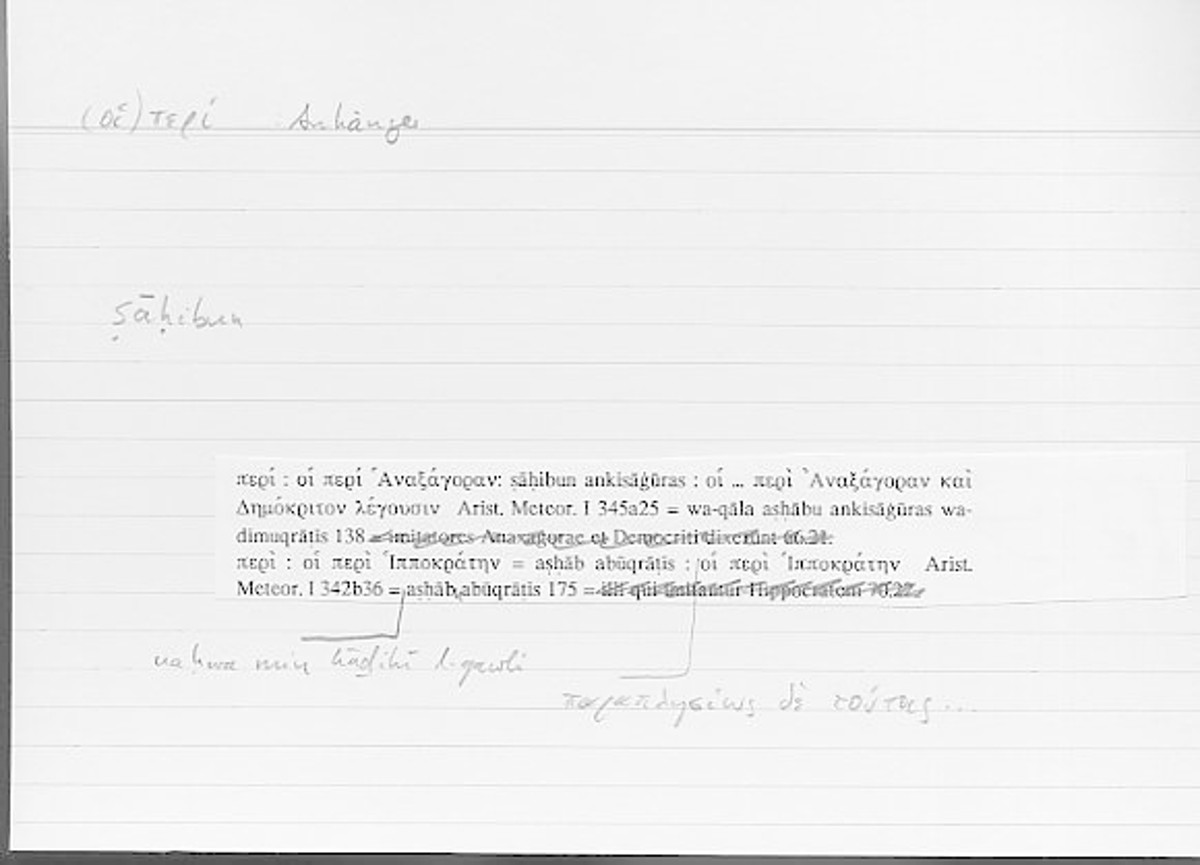 (οἱ) περί Anhänger
ṣāḥibun
περί : οἱ περί Ἀναξάγοραν: ṣāḥibun ankisāġūras : οἱ ... περὶ Ἀναξάγοραν καὶ
Δημόκριτον λέγουσιν Arist. Meteor. I 345a25 = wa-qāla aṣḥābu ankisāġūras wa-
dīmuqrāṭis 138 = imitatores Anaxagorae et Democriti dixerunt 66.21.
περὶ : οἱ περὶ Ἱπποκράτην = aṣḥāb abūqrāṭis : οἱ περὶ Ἱπποκράτην Arist.
Meteor. I 342b36 = aṣḥāb abūqrāṭis 175 = illi qui imitantur Hippocratem
naḥwa min hāḏihī l-qawli
παραπλησίως δὲ τούτοις ...